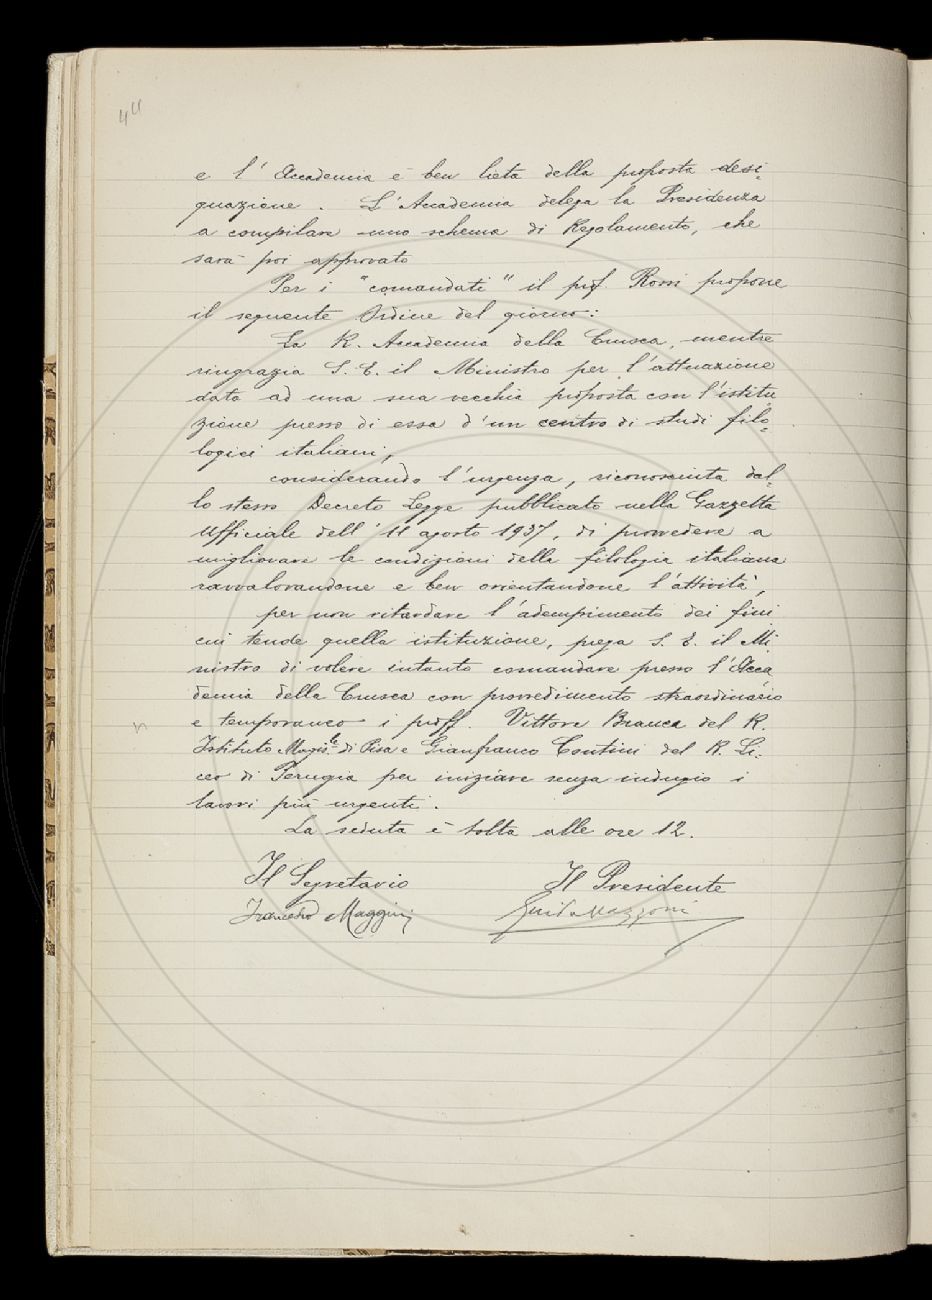 44
e l'Accademia è ben lieta della proposta desi-
gnazione. L'Accademia delega la Presidenza
a compilare uno schema di Regolamento, che
sarà poi approvato
Per i "comandati" il prof. Rossi propone
il seguente Ordine del giorno:
La R. Accademia della Crusca, mentre
ringrazia S. E. il Ministro per l'attuazione
data ad una sua vecchia proposta con l'istitu-
zione presso di essa d'un centro di studi filo-
logici italiani,
considerando l'urgenza, riconosciuta dal-
lo stesso Decreto Legge pubblicato nella Gazzetta
Ufficiale dell' 11 agosto 1937, di provvedere a
migliorare le condizioni della filologia italiana
ravvalorandone e ben orientandone l'attività,
per non ritardare l'adempimento dei fini
cui tende quella istituzione, prega S. E. il Mi-
nistro di volere intanto comandare presso l'Acca
demia della Crusca con provvedimento straordinario
e temporaneo i proff. Vittore Branca del R.
Istituto Magis.le di Pisa e Gianfranco Contini del R. Li-
ceo di Perugia per iniziare senza indugio i
lavori più urgenti.
La seduta è tolta alle ore 12.
Il Segretario Il Presidente
Francesco Maggini Guido Mazzoni